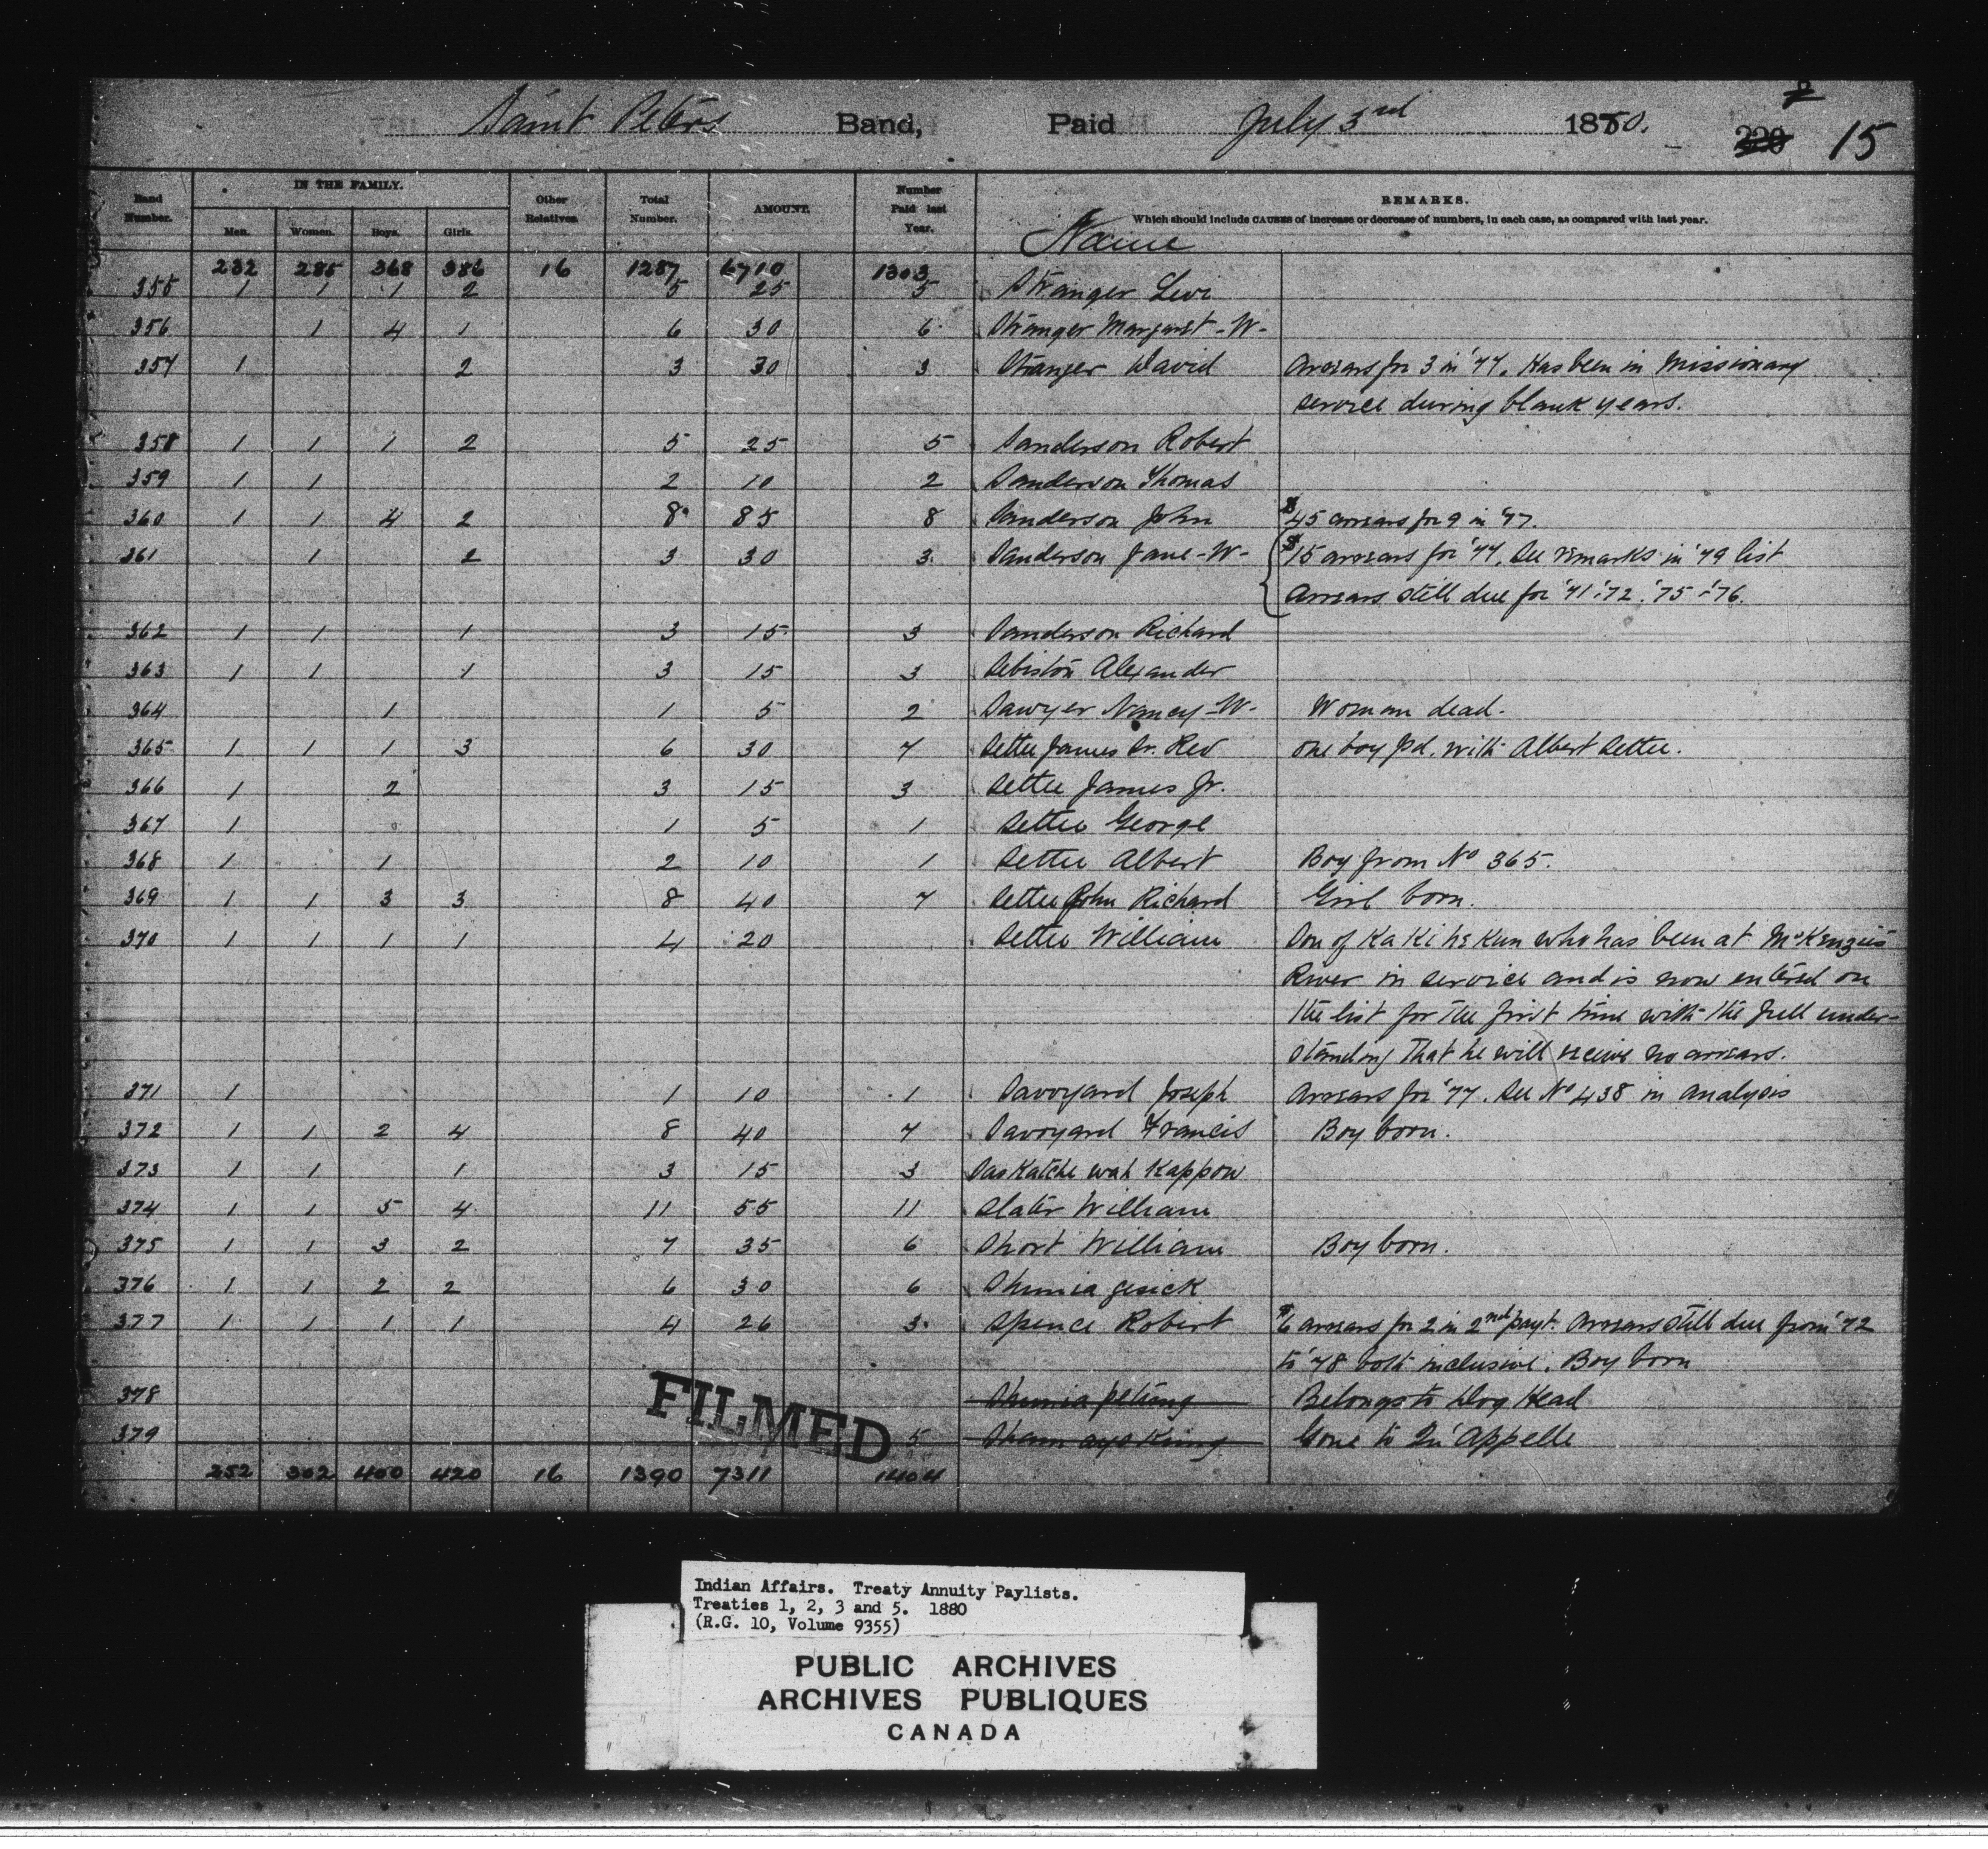 Saint Peters Band, Paid July 3rd 1880. 15
Band Number. IN THE FAMILY. Men. Women. Boys. Girls. Other Relatives. Total Number. AMOUNT. Number Paid last Year. Name REMARKS.
Which should include CAUSES of increase or decrease of numbers, in each case, as compared with last year.
232 285 368 386 16 1287 6710 1303
355 1 1 1 2 5 25 5 Stranger Levi
356 1 4 1 6 30 6 Stranger Margaret -W-
357 1 2 3 30 3 Stranger David Arrears for 3 in '77. Has been in Missionary
service during blank years.
358 1 1 1 2 5 25 5 Sanderson Robert
359 1 1 2 10 2 Sanderson Thomas
360 1 1 4 2 8 85 8 Sanderson John $45 arrears for 9 in '77.
361 1 2 3 30 3 Sanderson Jane -W- $15 arrears for '77. See remarks in '79 list
Arrears still due for '71 '72 '75 & '76.
362 1 1 1 3 15 3 Sanderson Richard
363 1 1 1 3 15 3 Sebiston Alexander
364 1 1 5 2 Sawyer Nancy -W- Woman dead.
365 1 1 1 3 6 30 7 Settee James Sr. Rev one boy pd. with Albert Settee.
366 1 2 3 15 3 Settee James Jr.
367 1 1 5 1 Settee George
368 1 1 2 10 1 Settee Albert Boy from No 365.
369 1 1 3 3 8 40 7 Settee John Richard Girl born.
370 1 1 1 1 4 20 Settee William Son of Ka Ki he Kun who has been at McKenzie's
River in service and is now entered on
the list for the first time with the full under-
standing that he will receive no arrears.
371 1 1 10 1 Savoyard Joseph Arrears for '77. See No 438 in analysis
372 1 1 2 4 8 40 7 Savoyard Francis Boy born.
373 1 1 1 3 15 3 Saskatche wah Kappow
374 1 1 5 4 11 55 11 Slater William
375 1 1 3 2 7 35 6 Short William Boy born.
376 1 1 2 2 6 30 6 Shunia gesick
377 1 1 1 1 4 26 3 Spence Robert $6 arrears for 2 in 2nd payt. Arrears still due from '72
to '78 both inclusive. Boy born
378 Shunia petung Belongs to Dog Head
379 5 Gone to Qu'Appelle
FILMED
252 302 400 420 16 1390 7311 1404
Indian Affairs. Treaty Annuity Paylists.
Treaties 1, 2, 3 and 5. 1880
(R.G. 10, Volume 9355)
PUBLIC ARCHIVES
ARCHIVES PUBLIQUES
CANADA